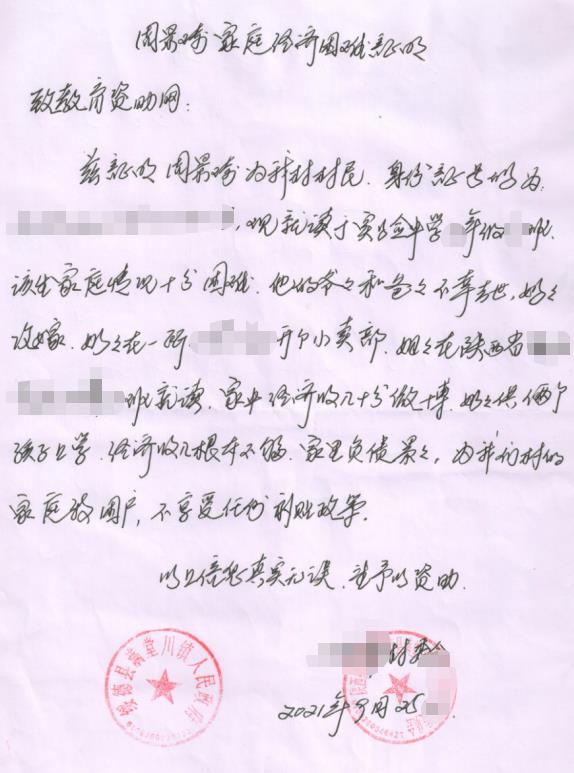 周景瑜家庭经济困难证明
致教育资助网:
兹证明周景瑜为我村村民.身份证号码为:
,现就读于实验中学 年级 班.
该生家庭情况十分困难.他的爷々和爸々不幸去世,妈々
改嫁.奶々在一所 开个小卖部.姐々在陕西省
班就读.家中经济收入十分微薄.奶々供俩个
孩子上学.经济收入根本不够.家里负债累々,为我们村的
家庭特困户,不享受任何补贴政策.
以上信息真实无误.望予以资助.
村委会
绥德县满堂川镇人民政府
2021年9月25